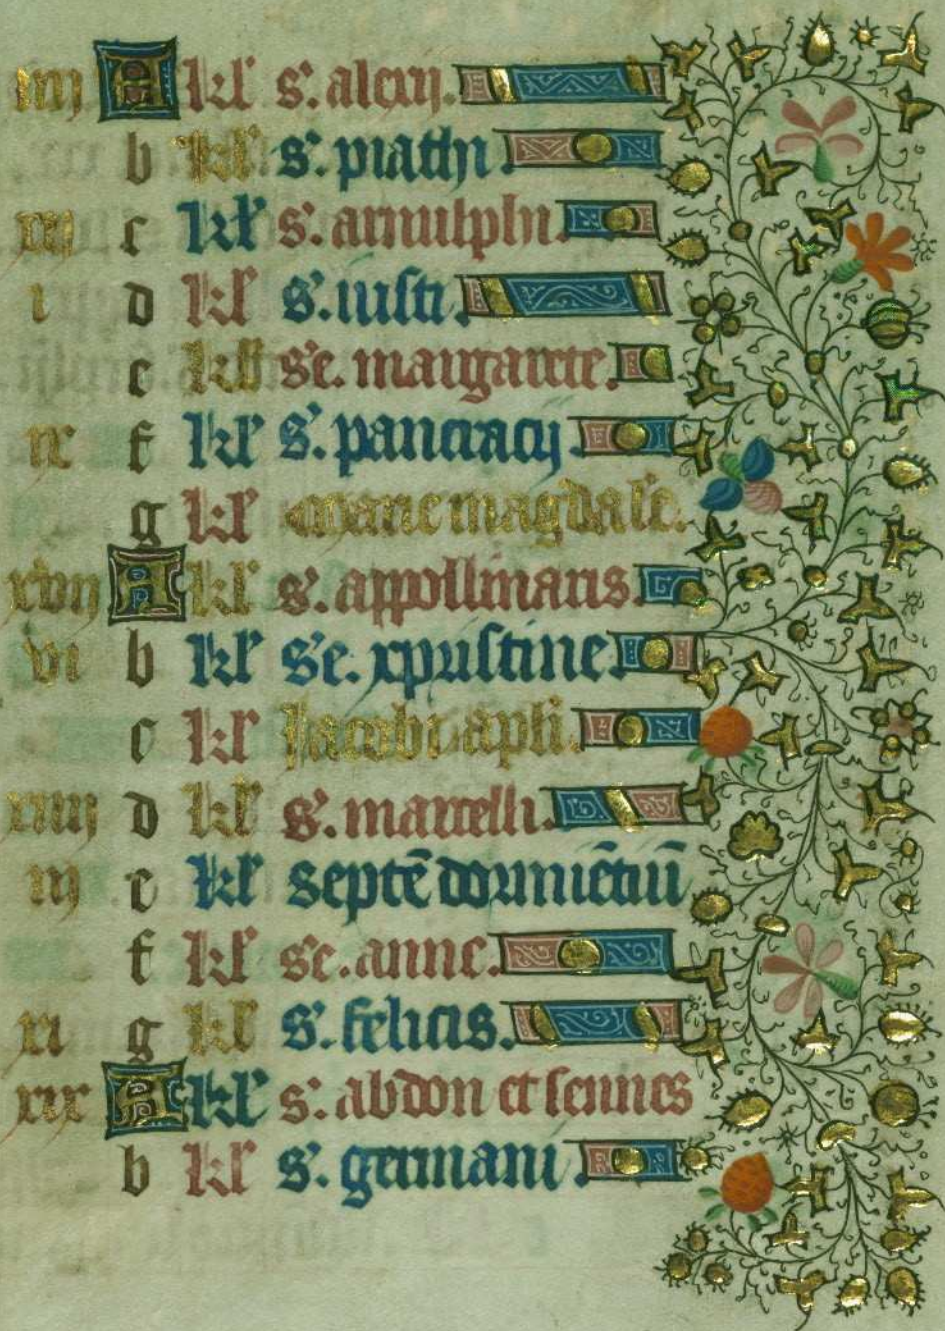 iiij A kl' s'. alexij.
b kl' s'. piathi
xij c kl' s'. arnulphi.
i d kl' s'. iusti.
e kl' s'e. margarete.
ix f kl' s'. pancracij.
g kl' marie magdale.
xvij A kl' s'. appollinaris.
vi b kl' s'e. xpristine.
c kl' Jacobi apli.
xiiij d kl' s'. marcelli.
iij e kl' septē dormiētiū
f kl' s'e. anne.
xi g kl' s'. felicis.
xix A kl' s'. abdon et sennes
b kl' s'. germani.